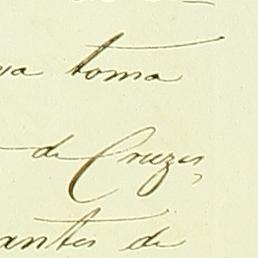 toma
de Cruzes,
antes de